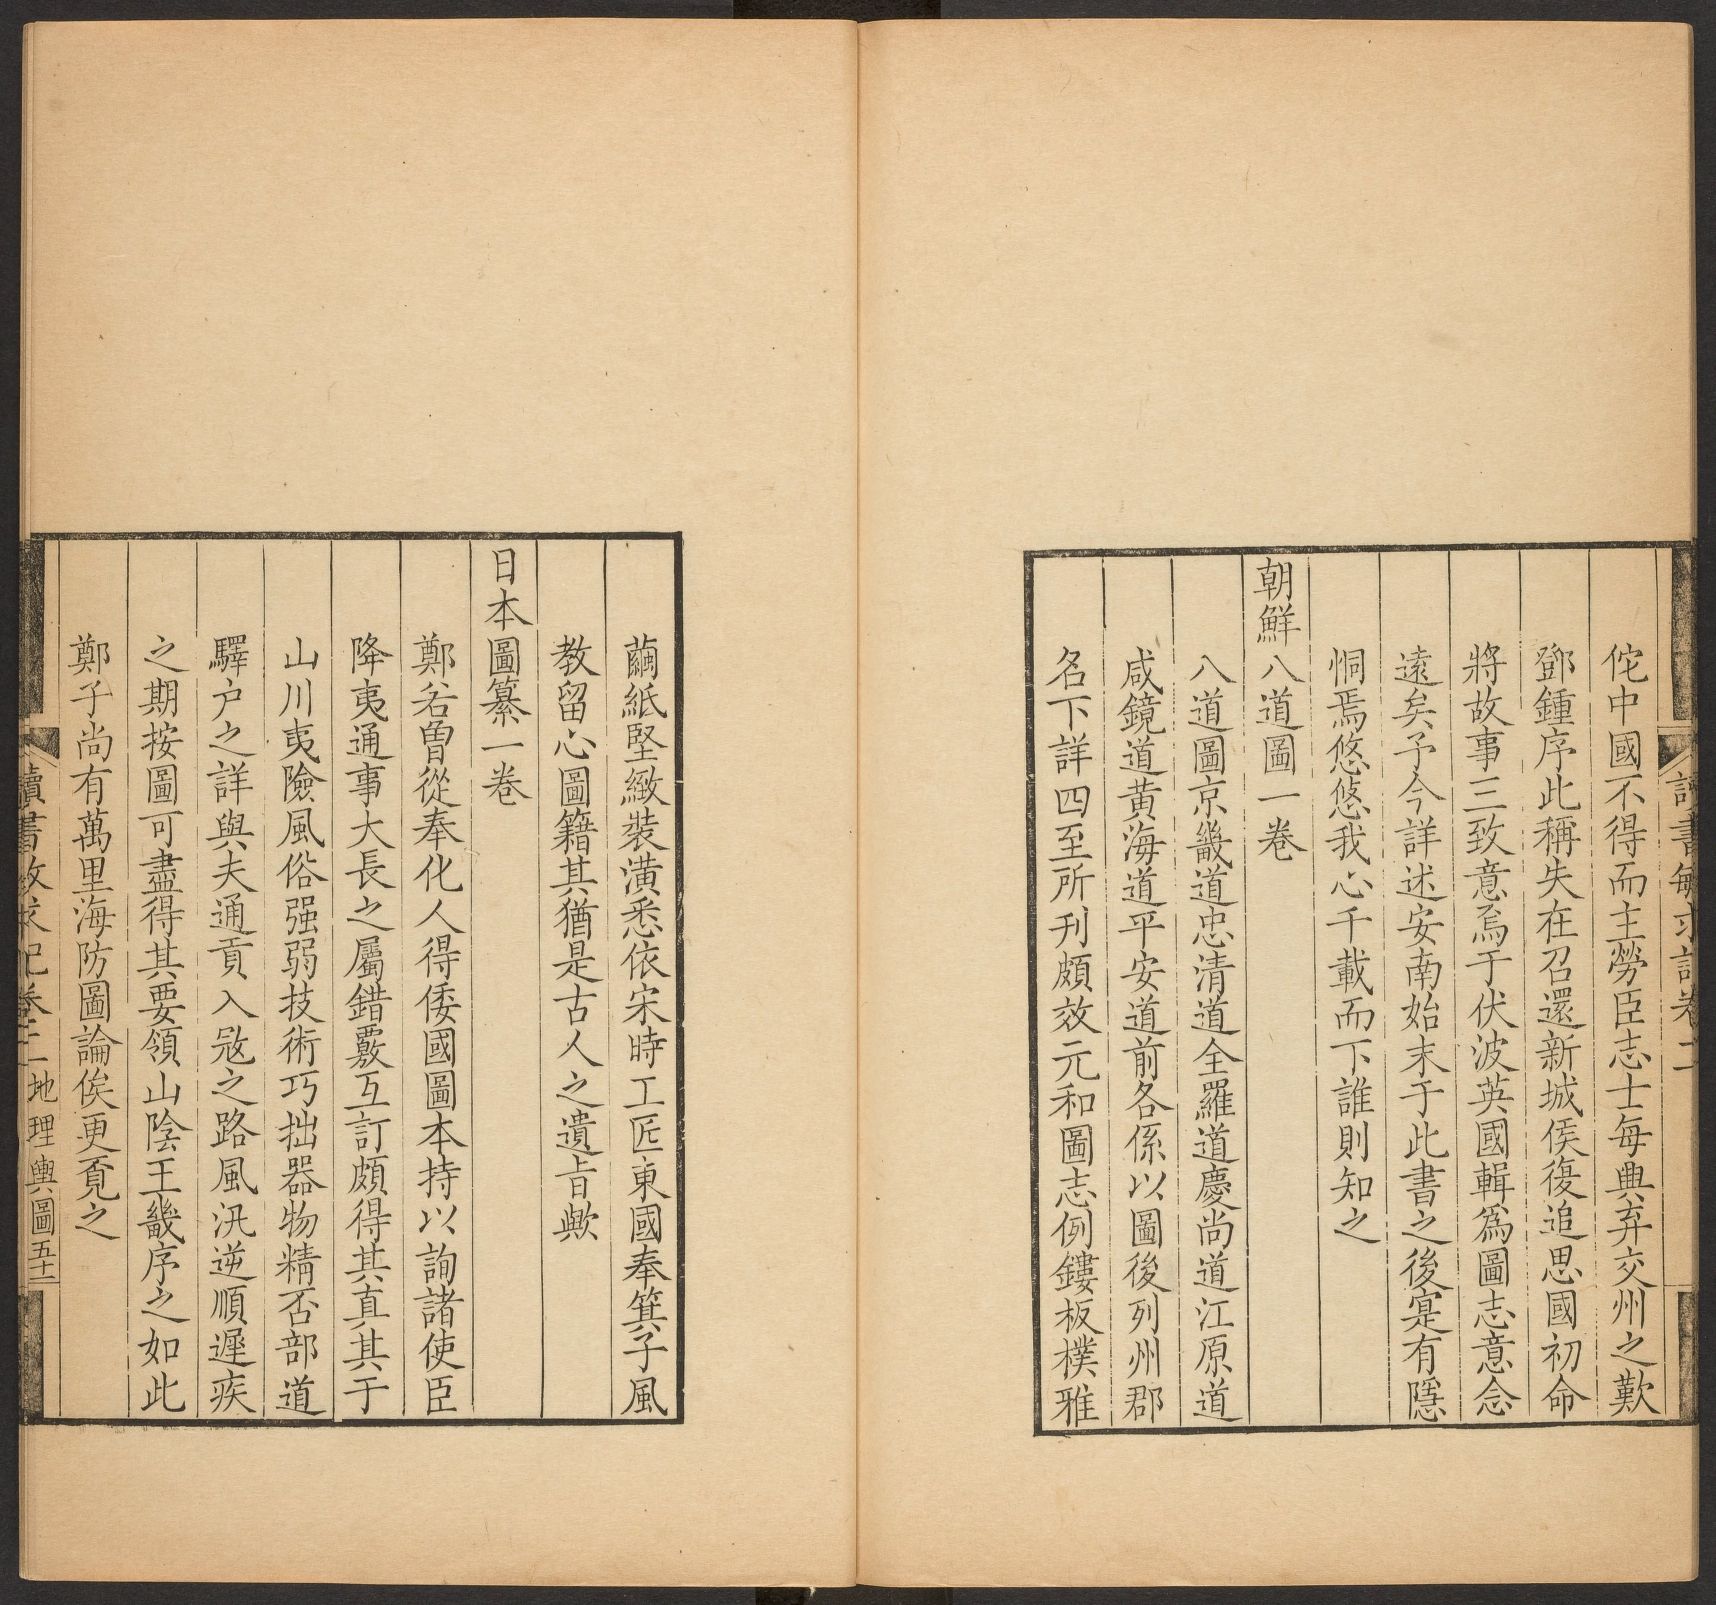 讀書敏求記卷二
佗中國不得而主勞臣志士每興弃交州之歎
鄧鍾序此稱失在召還新城侯復追思國初命
將故事三致意焉于伏波英國輯爲圖志意念
遠矣予今詳述安南始末于此書之後寔有隱
恫焉悠悠我心千載而下誰則知之
朝鮮八道圖一卷
八道圖京畿道忠清道全羅道慶尚道江原道
咸鏡道黄海道平安道前各係以圖後列州郡
名下詳四至所刊頗效元和圖志例鏤板樸雅
繭紙堅緻裝潢悉依宋時工匠東國奉箕子風
教留心圖籍其猶是古人之遺旨歟
日本圖纂一卷
鄭若曾從奉化人得倭國圖本持以詢諸使臣
降夷通事大長之屬錯覈互訂頗得其真其于
山川夷險風俗强弱技術巧拙器物精否部道
驛户之詳與夫通貢入寇之路風汛逆順遲疾
之期按圖可盡得其要領山陰王畿序之如此
鄭子尚有萬里海防圖論俟更覓之
讀書敏求記卷二 地理輿圖 五十一